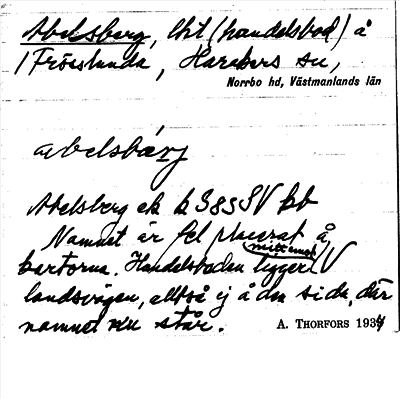 Abelsberg, lht (handelsbod) å
/ Fröslunda, Harakers sn,
Norrbo hd, Västmanlands län
abelsbärj
Abelsberg ek b S85SV bb
Namnet är fel placerat å
kartorna. Handelsboden ligger V
mittemot
landsvägen, alltså ej å den sida, där
namnet nu står.
A. THORFORS 1934